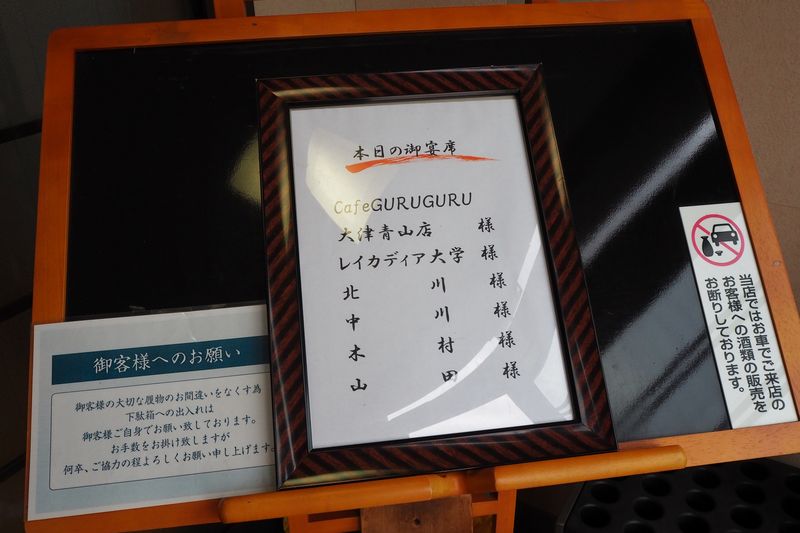 本日の御宴席
CafeGURUGURU
大津青山店 様
レイカディア大学 様
北川 様
中川 様
木村 様
山田 様
御客様へのお願い
御客様の大切な履物のお間違いをなくす為
下駄箱への出入れは
御客様ご自身でお願い致しております。
お手数をお掛け致しますが
何卒、ご協力の程よろしくお願い申し上げます。
当店ではお車でご来店の
お客様への酒類の販売を
お断りしております。